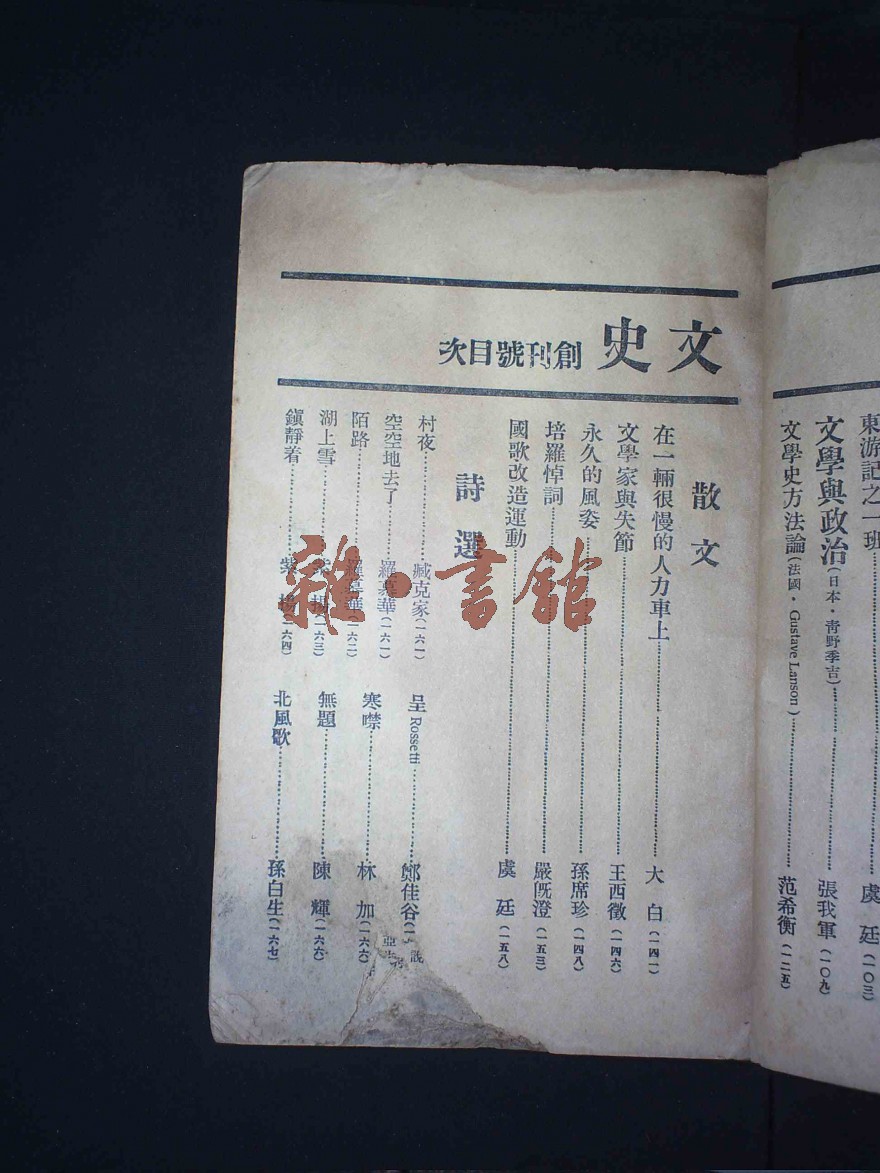 東游記之一班……虞廷(一〇三)
文學與政治(日本・青野季吉)……張我軍(一〇九)
文學史方法論(法國・Gustave Lanson)……范希衡(一二五)
文史 創刊號目次
散文
在一輛很慢的人力車上……大白(一四一)
文學家與失節……王西徵(一四六)
永久的風姿……孫席珍(一四八)
培羅悼詞……嚴旣澄(一五三)
國歌改造運動……虞廷(一五八)
詩選
村夜……臧克家(一六一)
呈Rossetti……鄭佳谷(一
空空地去了……羅慕華(一六一)
寒噤……林加(一六六)
陌路……羅慕華(一六二)
無題……陳輝(一六六)
湖上雪……紫楊(一六三)
北風歌……孫白生(一六七)
鎭靜着……紫楊(一六四)
雜・書館